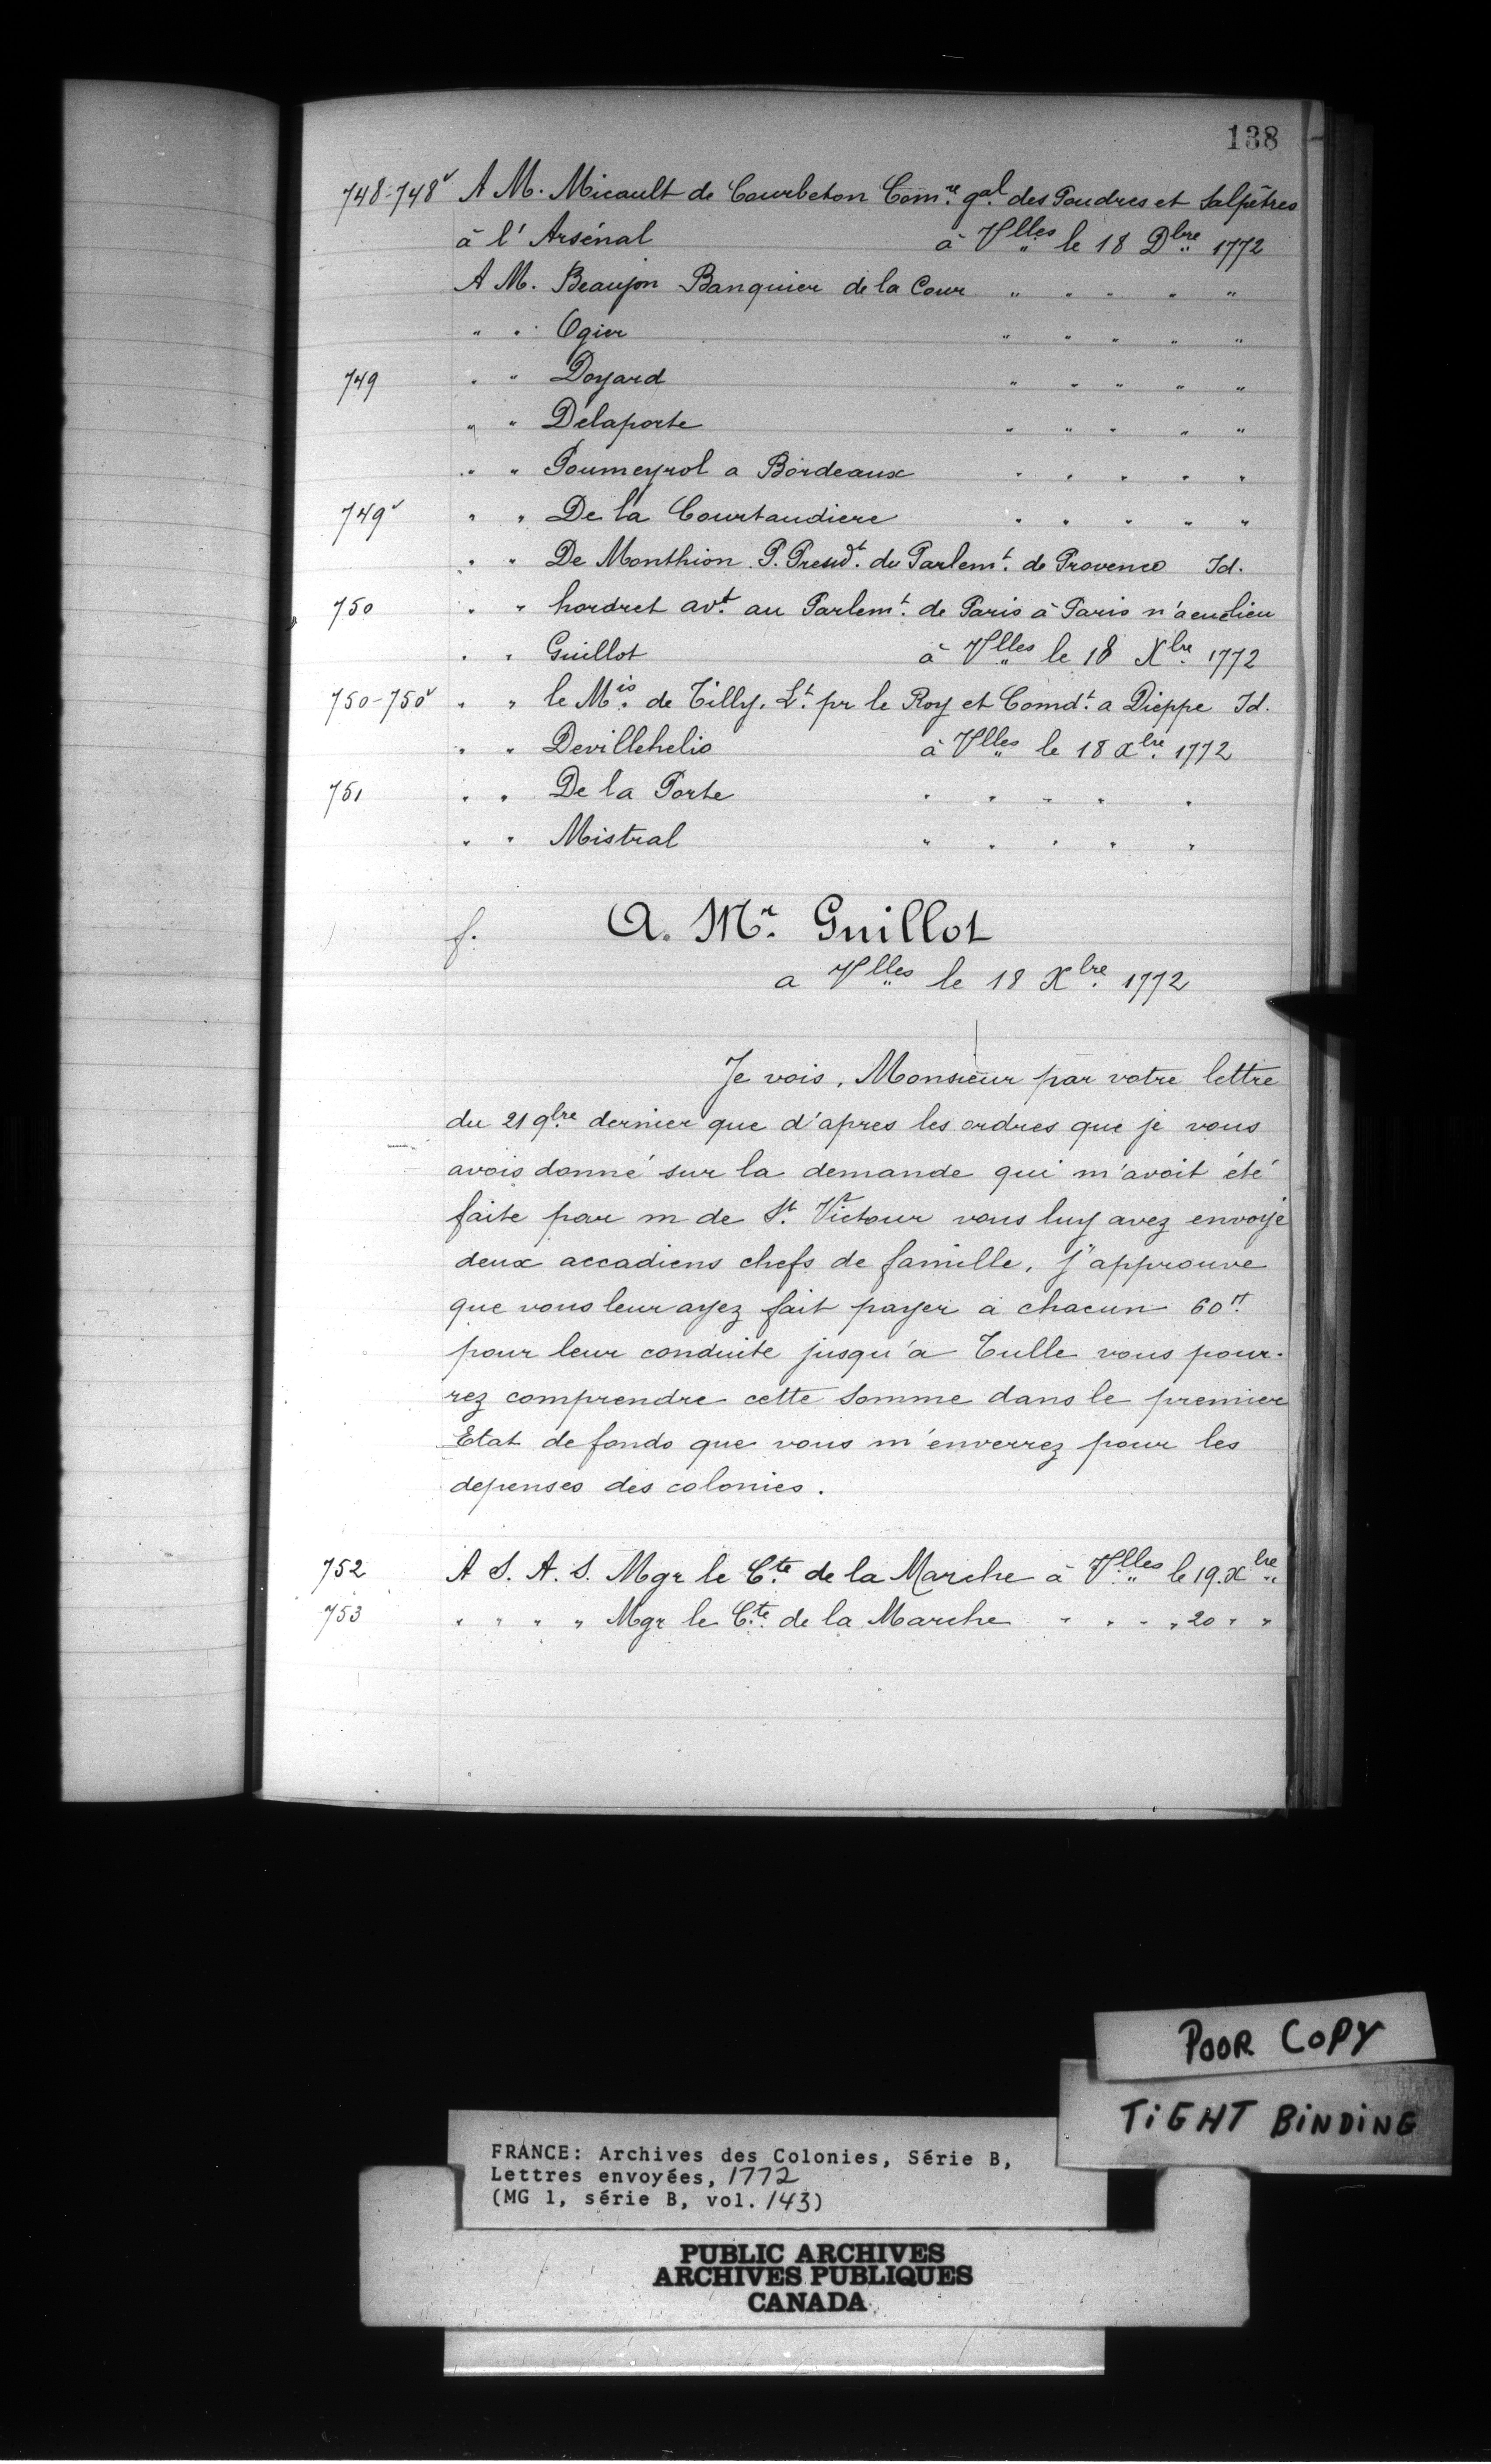 138
748-748v A M. Micault de Courbeton Com.re g.al des Poudres et Salpêtres
à l'Arsénal à V.lles le 18 D.bre 1772
A M. Beaujon Banquier de la Cour " " " " "
" " Ogier " " " " "
749 " " Doyard " " " " "
" " Delaporte " " " " "
" " Poumeyrol a Bordeaux " " " " "
749v " " De la Courtaudiere " " " " "
" " De Monthion P. Presid.t du Parlem.t de Provence Id.
750 " " hordret av.t au Parlem.t de Paris à Paris n'a eu lieu
" " Guillot à V.lles le 18 X.bre 1772
750-750v " " le M.is de Tilly. L.t pr le Roy et Comd.t a Dieppe Id.
" " Devillehelio à V.lles le 18 X.bre 1772
751 " " De la Porte " " " " "
" " Mistral " " " " "
f. A. M.r Guillot
a V.lles le 18 X.bre 1772
Je vois, Monsieur par votre lettre
du 21 9.bre dernier que d'apres les ordres que je vous
avois donné sur la demande qui m'avoit été
faite par m de S.t Victour vous luy avez envoyé
deux accadiens chefs de famille, j'approuve
que vous leur ayez fait payer à chacun 60.tt
pour leur conduite jusqu'a Tulle vous pour-
rez comprendre cette somme dans le premier
Etat de fonds que vous m'enverrez pour les
depenses des colonies.
752 A S. A. S. Mgr le C.te de la Marche à V.lles le 19. X.bre
753 " " " " Mgr le C.te de la Marche " " " " 20 " "
POOR COPY
TIGHT BINDING
FRANCE: Archives des Colonies, Série B,
Lettres envoyées, 1772
(MG 1, série B, vol. 143)
PUBLIC ARCHIVES
ARCHIVES PUBLIQUES
CANADA